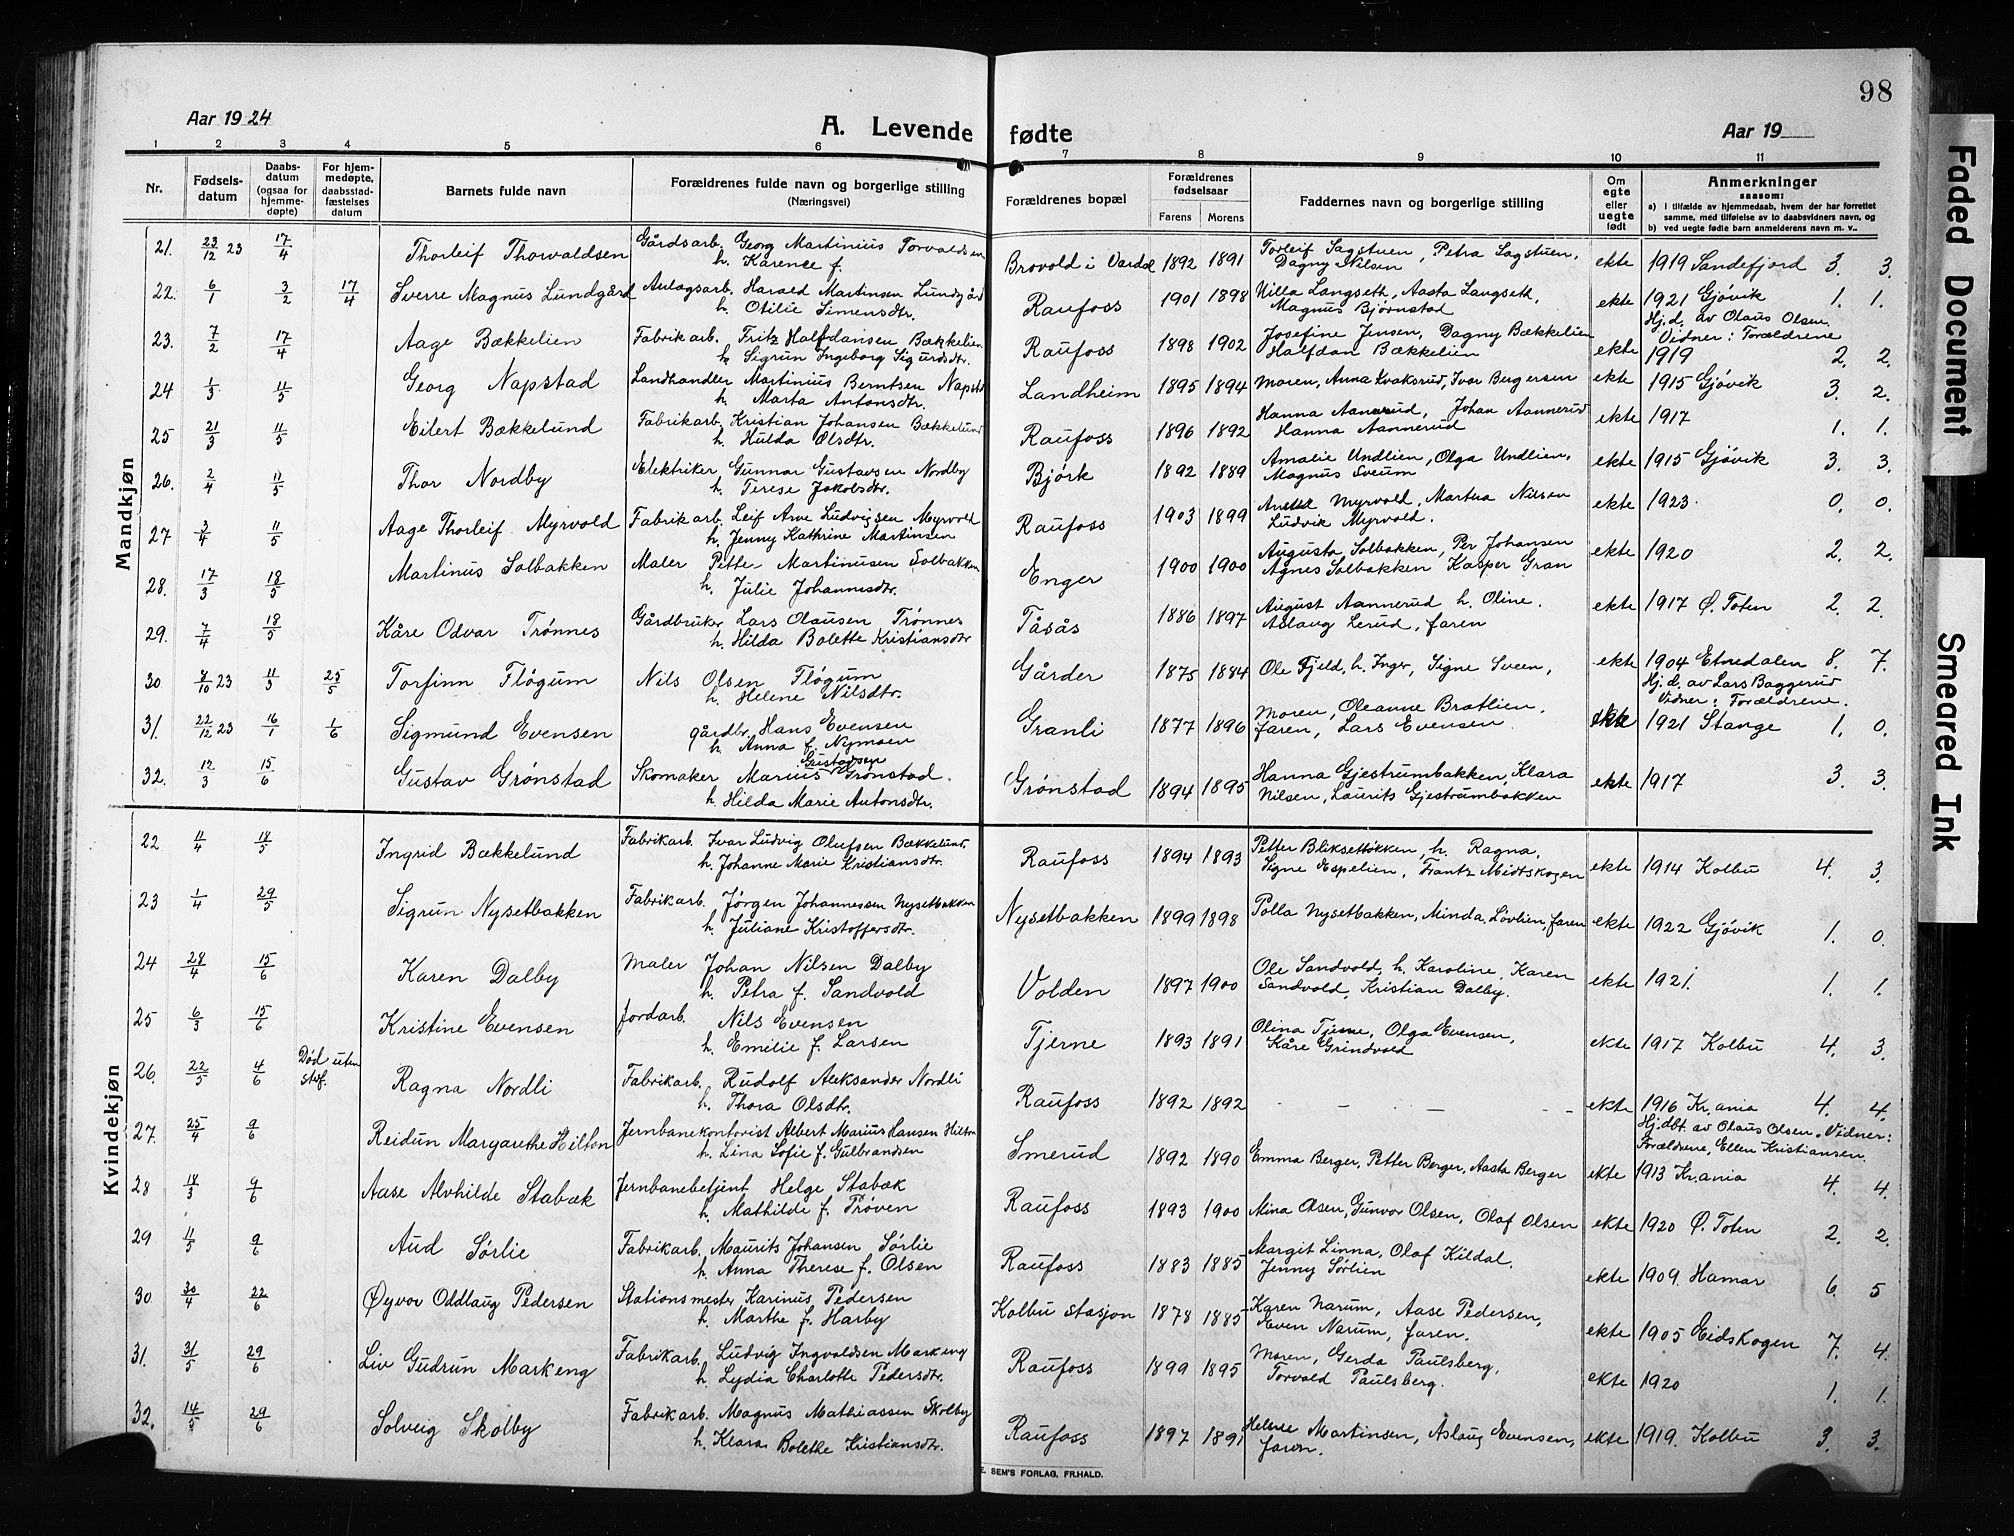 98
Aar 1924
A. Levende fødte
Aar 19
1 2 3 4 5 6 7 8 9 10 11
Nr.
Fødsels-
datum
Daabs-
datum
(ogsaa for
hjemme-
døpte)
For hjem-
medøpte,
daabsstad-
fæstelses
datum
Barnets fulde navn
Forældrenes fulde navn og borgerlige stilling
(Næringsvei)
Forældrenes bopæl
Forældrenes
fødselsaar
Farens Morens
Faddernes navn og borgerlige stilling
Om
egte
eller
uegte
født
Anmerkninger
saasom:
a) i tilfælde av hjemmedaab, hvem der har forrettet
samme, med tilføielse av to daabsvidners navn, og
b) ved uegte fødte barn anmelderens navn m. v..
Mandkjøn
21. 23/12 23 17/4 Thorleif Thorvaldsen Gårdsarb. Georg Martinius Torvaldsen
h. Karence f. Brovold i Vardal 1892 1891 Torleif Sagstuen, Petra Sagstuen,
Dagny Nilsen ekte 1919 Sandefjord 3. 3.
22. 6/1 3/2 17/4 Sverre Magnus Lundgård Anlagsarb. Harald Martinsen Lundgård
h. Otilie Simensdtr. Raufoss 1901 1898 Villa Langseth, Aasta Langseth,
Magnus Bjørnstad ekte 1921 Gjøvik 1. 1.
Hj.d. av Olaus Olsen.
Vidner: Forældrene
23. 7/2 17/4 Aage Bækkelien Fabrikarb. Fritz Halfdansen Bækkelien
h. Sigrun Ingeborg Sigurdsdtr. Raufoss 1898 1902 Josefine Jensen, Dagny Bækkelien
Halfdan Bækkelien ekte 1919 2. 2.
24 1/3 11/5 Georg Napstad Landhandler Martinius Berntsen Napstad
h. Marta Antonsdtr. Landheim 1895 1894 Moren, Anna Kvaksrud, Ivar Bergersen ekte 1915 Gjøvik 3. 2.
25 21/3 11/5 Eilert Bækkelund Fabrikarb. Kristian Johansen Bækkelund
h. Hulda Olsdtr. Raufoss 1896 1892 Hanna Aannerud, Johan Aannerud
Hanna Aannerud ekte 1917 1. 1.
26. 2/4 11/5 Thor Nordby Elektriker Gunnar Gustavsen Nordby
h. Terese Jakobsdtr. Bjørk 1892 1889 Amalie Undlien, Olga Undlien,
Magnus Sveum ekte 1915 Gjøvik 3. 3.
27 3/4 11/5 Aage Thorleif Myrvold Fabrikarb. Leif Arve Ludvigsen Myrvold
h. Jenny Kathrine Martinsen Raufoss 1903 1899 Myrvold, Martha Nilsen
Ludvik Myrvold. ekte 1923. 0. 0.
28. 17/3 18/5 Martinus Solbakken Maler Petter Martinusen Solbakken
h. Julie Johannesdtr. Enger 1900 1900 Augusta Solbakken, Per Johansen
Agnes Solbakken Kasper Gran ekte 1920 2. 2.
29. 7/4 18/5 Kåre Odvar Trønnes Gårdbruker Lars Olausen Trønnes
h. Hilda Bolette Kristiansdtr Tåsås 1886 1897 August Aannerud h. Oline.
Aslaug Lerud, faren ekte 1917 Ø. Toten 2. 2.
30 8/10 23 11/3 25/5 Torfinn Fløgum Nils Olsen Fløgum
h. Helene Nilsdtr. Gårder 1875 1884 Ole Fjeld, h. Inger, Signe Sveen, ekte 1904 Etnedalen 8. 7.
Hj.d. av Lars Baggerud
Vidner: Forældrene.
31. 22/12 23 16/1 1/6 Sigmund Evensen gårdbr. Hans Evensen
h. Anna f. Nymoen Granli 1877 1896 Moren, Oleanne Bratlien.
faren, Lars Evensen. ekte 1921 Stange 1. 0.
32. 12/3 15/6 Gustav Grønstad Skomaker Marius Gustavsen Grønstad.
h. Hilda Marie Antonsdtr. Grønstad 1894 1895 Hanna Gjestrumbakken, Klara
Nilsen, Laurits Gjestrumbakken ekte 1917 3. 3.
Kvindekjøn
22 11/4 18/5 Ingrid Bækkelund Fabrikarb. Ivar Ludvig Olufsen Bækkelund.
h. Johanne Marie Kristiansdtr. Raufoss 1894 1893 Petter Bliksetløkken, h. Ragna,
Signe Espelien, Frantz Midtskogen ekte 1914 Kolbu 4. 3.
23 1/4 29/5 Sigrun Nysetbakken Fabrikarb. Jørgen Johannessen Nysetbakken
h. Juliane Kristoffersdtr. Nysetbakken 1899 1898 Polla Nysetbakken, Minda Løvlien, faren ekte 1922 Gjøvik 1. 0.
24 28/4 15/6 Karen Dalby Maler Johan Nilsen Dalby
h. Petra f. Sandvold Volden 1897 1900 Ole Sandvold, h. Karoline, Karen
Sandvold, Kristian Dalby. ekte 1921. 1. 1.
25 6/3 15/6 Kristine Evensen Jordarb. Nils Evensen
h. Emilie f. Larsen Tjerne 1893 1891 Olina Tjerne, Olga Evensen,
Kåre Grindvold ekte 1917 Kolbu 4. 3.
26. 22/5 4/6 Død uten
stf. Ragna Nordli Fabrikarb. Rudolf Aleksander Nordli
h. Thora Olsdtr. Raufoss 1892 1892 — — — ekte 1916 Kr.ania 4. 4.
Hj.dbt av Olaus Olsen. Vidner:
Forældrene, Ellen Kristiansen.
27. 25/4 9/6 Reidun Margarethe Hilton Jernbanekontorist Albert Marius Hansen Hilton
h. Lina Sofie f. Gulbrandsen Smerud 1892 1890 Emma Berger, Petter Berger, Aasta Berger ekte 1913 Kr.ania 4. 4.
28 18/3 9/6 Aase Alvhilde Stabæk Jernbanebetjent Helge Stabæk
h. Mathilde f. Prøven Raufoss 1893 1900 Mina Olsen, Gunvor Olsen, Olaf Olsen ekte 1920 Ø. Toten 2. 2.
29 11/5 9/6 Aud Sørlie Fabrikarb. Maurits Johansen Sørlie
h. Anna Therese f. Olsen Raufoss 1883 1885 Margit Linna, Olaf Kildal,
Jenny Sørlien ekte 1909. Hamar 6. 5
30 30/4 22/6 Øyvor Oddlaug Pedersen Stationsmester Karinus Pedersen
h. Marthe f. Harby Kolbu stasjon 1878 1885 Karen Narum, Aase Pedersen,
Even Narum, faren. ekte 1905 Eidskogen 7. 4.
31. 31/5 29/6 Liv Gudrun Markeng Fabrikarb. Ludvig Ingvaldsen Markeng
h. Lydia Charlotte Pedersdtr. Raufoss 1899 1895 Moren, Gerda Paulsberg,
Torvald Paulsberg. ekte 1920 1. 1.
32. 14/5 29/6 Solveig Skolby Fabrikarb. Magnus Mathiassen Skolby
h. Klara Bolette Kristiansdtr. Raufoss 1897 1891 Helene Martinsen, Aslaug Evensen,
faren. ekte 1919. Kolbu 3. 3.
E. SEM'S FORLAG, FR.HALD.
Faded Document
Smeared Ink